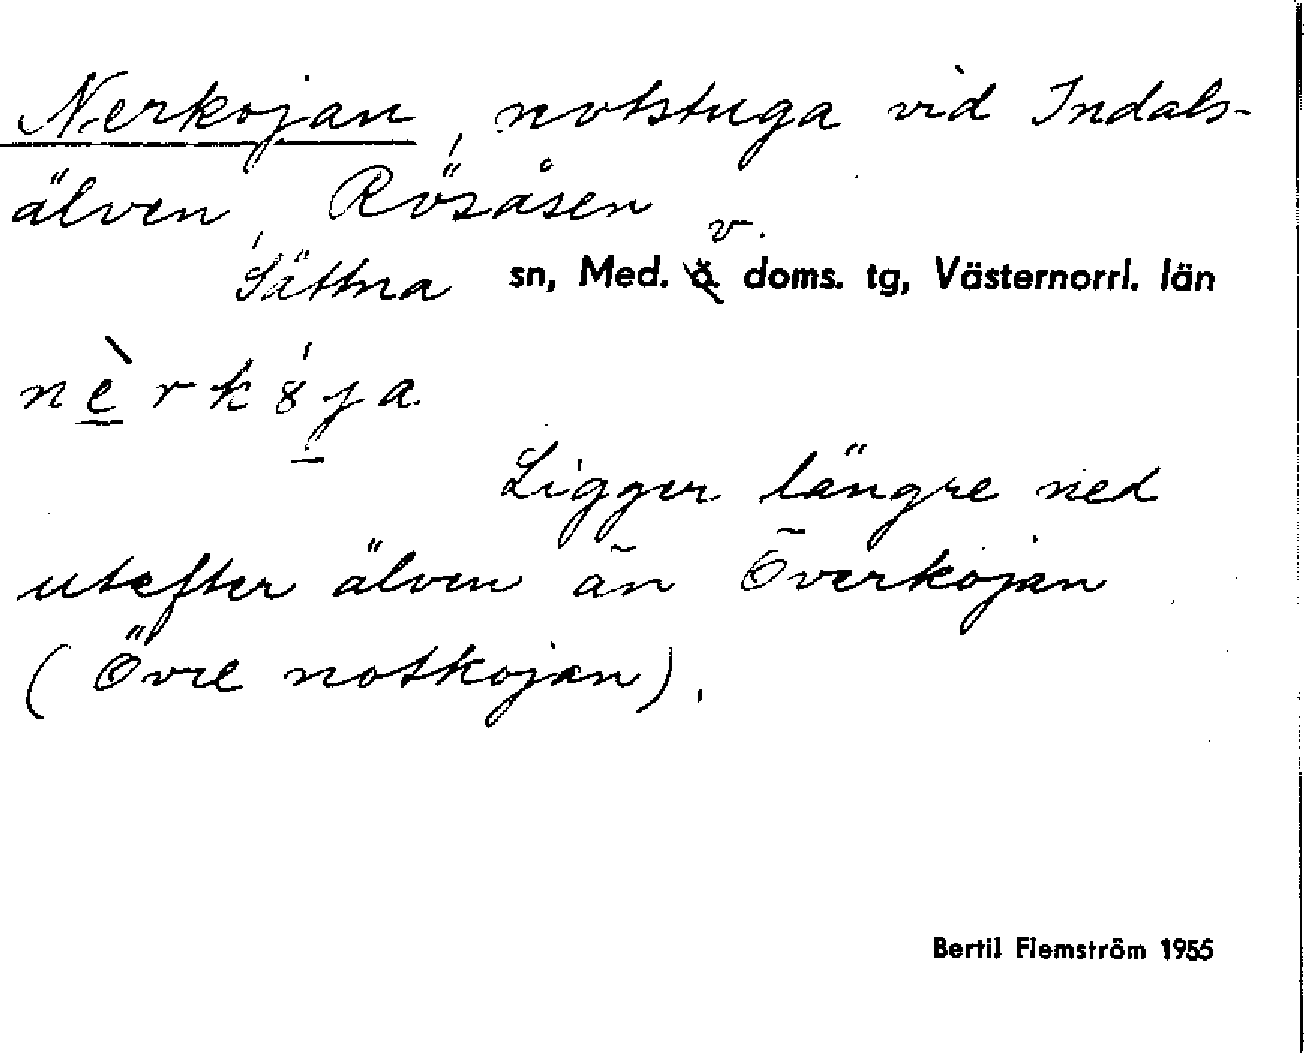 Nerkojan, notstuga vid Indals-
älven, Rösåsen
Sättna sn, Med. v. doms. tg, Västernorrl. län
nèrkó̱ja
Ligger längre ned
utefter älven än Överkojan
(Övre notkojan).
Bertil Flemström 1955